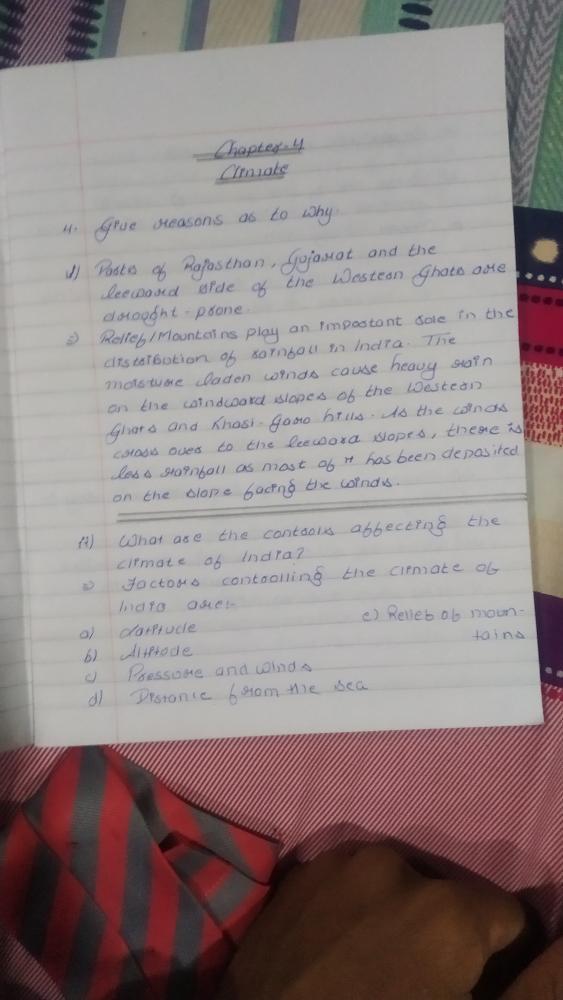 Chapter-4
Climate
4. Give reasons as to why.
d) Parts of Rajasthan, Gujarat and the
leeward side of the Western Ghats are
drought-prone.
Relief/Mountains play an important role in the
distribution of rainfall in India. The
moisture laden winds cause heavy rain
on the windward slopes of the Western
Ghats and Khasi-Garo hills. As the winds
cross over to the leeward slopes, there is
less rainfall as most of it has been deposited
on the slope facing the winds.
What are the controls affecting the
climate of India?
Factors controlling the climate of
India are:-
a) Latitude
b) Altitude
c) Pressure and winds
d) Distance from the sea
e) Relief of moun-
tains